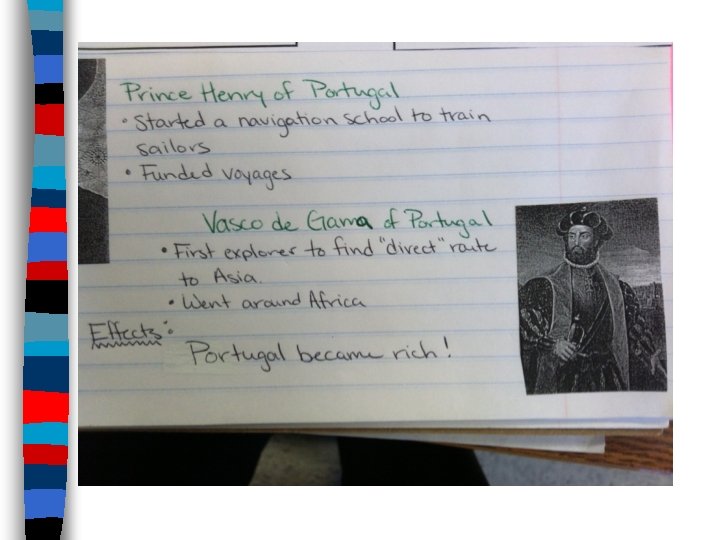 Prince Henry of Portugal
• Started a navigation school to train
sailors
• Funded voyages
Vasco de Gama of Portugal
• First explorer to find "direct" route
to Asia.
• Went around Africa
Effects:
Portugal became rich!